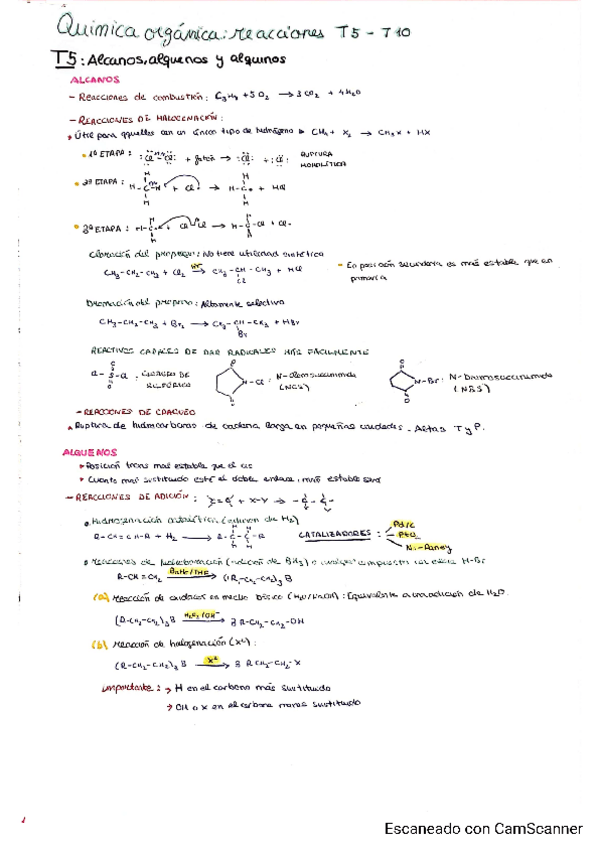 Química orgánica: reacciones T5 - T10
T5: Alcanos, alquenos y alquinos
ALCANOS
- Reacciones de combustión: C3H8 + 5O2 → 3CO2 + 4H2O
- REACCIONES DE HALOGENACIÓN:
Útil para aquellos con un único tipo de hidrógeno CH4 + X2 → CH3X + HX
1ª ETAPA: :Cl-Cl: + → :Cl· + ·Cl: RUPTURA HOMOLÍTICA
2ª ETAPA: + Cl· → + HCl
3ª ETAPA: + Cl-Cl → + Cl·
Cloración del propano: No tiene utilidad sintética
CH3-CH2-CH3 + Cl2 → CH3-CH-CH3 + HCl
Cl
- En posición secundaria es más estable que en primaria
Bromación del propano: Altamente selectiva
CH3-CH2-CH3 + Br2 → CH3-CH-CH3 + HBr
Br
REACTIVOS CAPACES DE DAR RADICALES MÁS FACILMENTE
Cl-S-Cl CLORURO DE SULFURILO
N-Cl: N-Clorosuccinimida (NCS)
N-Br: N-bromosuccinimida (NBS)
- REACCIONES DE CRAQUEO
Ruptura de hidrocarburos de cadena larga en pequeñas unidades. Altas T y P.
ALQUENOS
Posición trans mas estable que el cis
Cuanto mas sustituido esté el doble enlace, mas estable será
- REACCIONES DE ADICIÓN: C=C + X-Y → -C-C-
Hidrogenación catalítica (adición de H2)
R-CH=CH-R + H2 → R-C-C-R
CATALIZADORES:
Pd/C
PtO2
Ni-Raney
Reacciones de hidroboración (adición de BH3) o cualquier compuesto H-B
R-CH=CH2 BH3/THF → (R-CH2-CH2)3B
(a) Reacción de oxidación en medio básico (H2O/NaOH): Equivalente a una adición de H2O.
(R-CH2-CH2)3B H2O2/OH- → 3 R-CH2-CH2-OH
(b) Reacción de halogenación (X2):
(R-CH2-CH2)3B X2 → 3 R CH2-CH2-X
Importante: → H en el carbono más sustituido
→ OH o X en el carbono menos sustituido
Escaneado con CamScanner